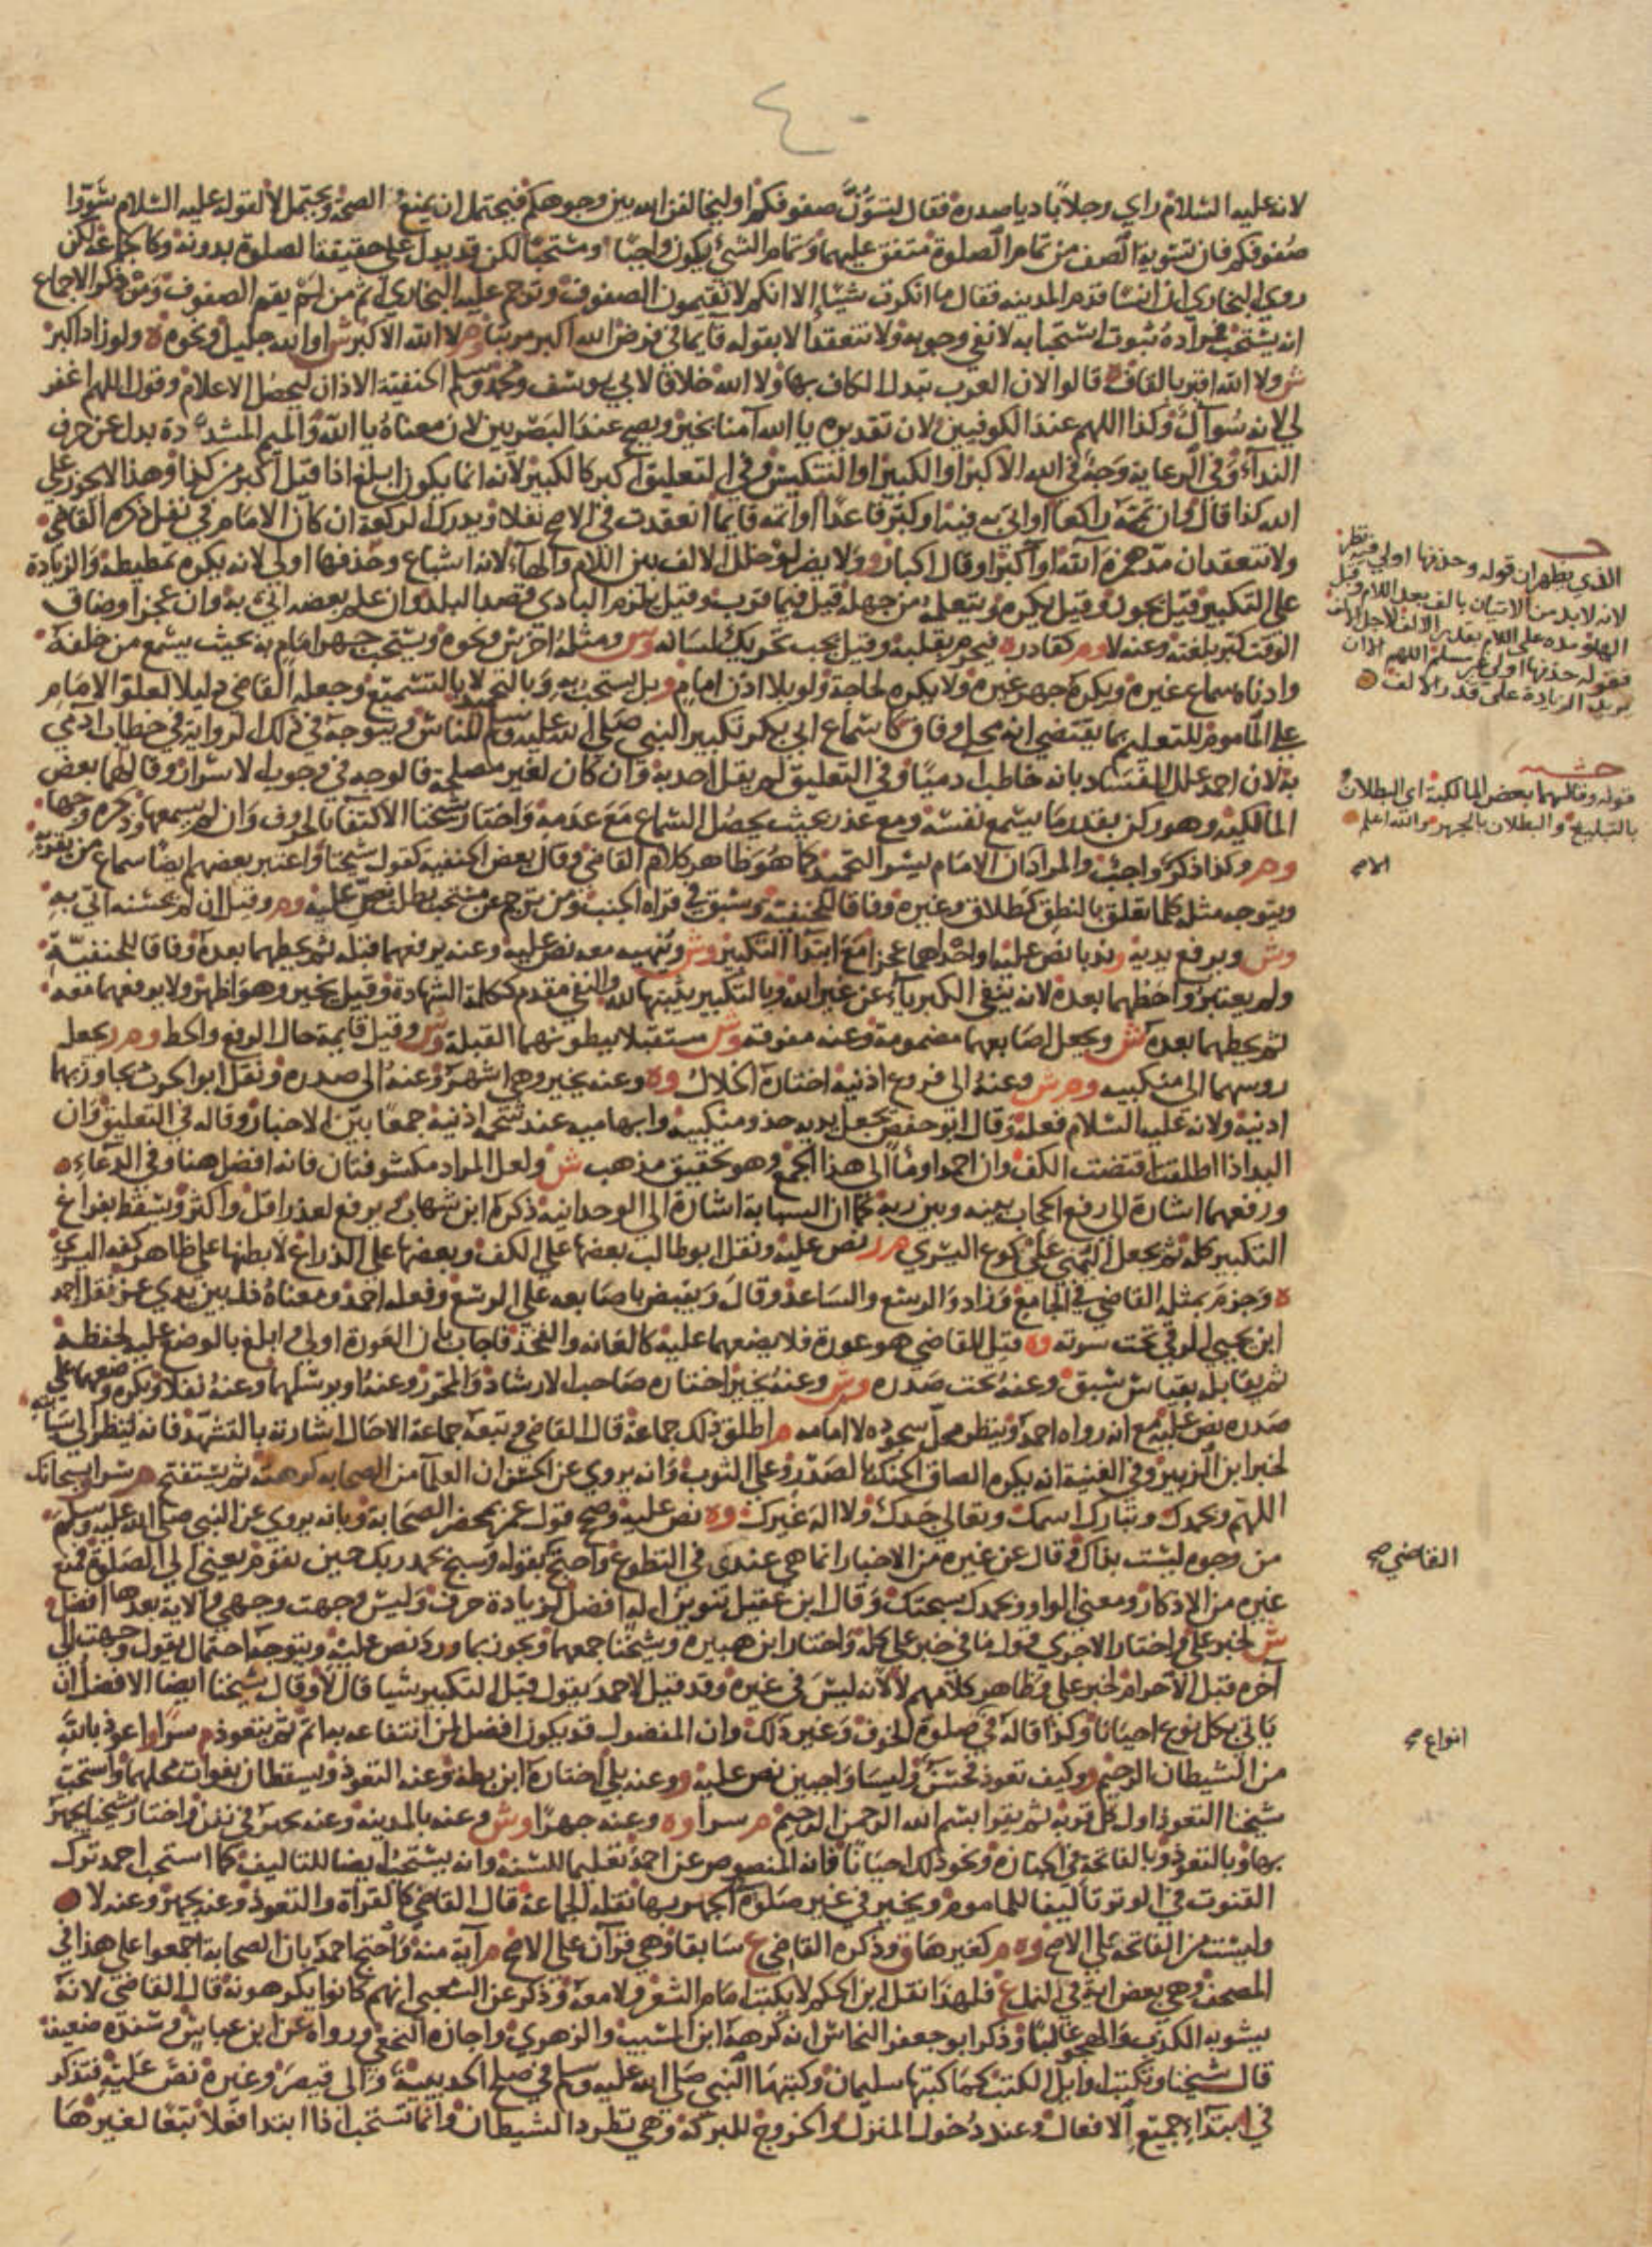 ٤٠
لانه عليه السلام راي رجلا باديا صدره فقال لتسوّنّ صفوفكم او ليخالفن الله بين وجوهكم فيحتمل ان يمنع الصحة ويحتمل لا لقوله عليه السلام سَوّوا
صُفوفكم فان تسوية الصف من تمام الصلوة متفق عليهما وتمام الشيء يكون واجبا ومستحبا لكن قد يدل على حقيقة الصلوة بدونه وكالجماعة لكن
روي البخاري ان انسا قدم المدينه فقال ما انكرت شيئا إلا انكم لا تقيمون الصفوف وترجم عليه البخاري اثم من لم يقم الصفوف ومن ذكر الاجماع
انه يستحب فمراده ثبوت استحبابه لا نفي وجوبه ولا تنعقد الا بقوله قايما في فرض الله اكبر مرتبا وم لا الله الاكبر ش او الله جليل ونحوه ه ولو زاد اكبر
ش ولا الله اقبر بالقاف ه قالوا لان العرب تبدل الكاف بها ولا الله خلافا لابي يوسف ومحمد وسلم الحنفية الاذان ليحصل الاعلام وقول اللهم اغفر
لي لانه سُوآل وكذا اللهم عند الكوفيين لان تقديره يا الله آمنا بخير ويصح عند البصريين لان معناه يا الله والميم المشددة بدل عن حرف
النداء وفي الرعاية وجه في الله الاكبر او الكبير او التنكيس وفي التعليق اكبر كالكبير لانه انما يكون ابلغ اذا قيل اكبر من كذا وهذا لا يجوز على
الله كذا قال وان تممه راكعا او اتى به فيه او كبر قاعدا او اتمه قايما انعقدت في الاصح نفلا ويدرك الركعة ان كان الامام في نفل ذكره القاضي
ولا تنعقد ان مد همزة الله او اكبر او قال اكبار و ولا يضر لو خلل الالف بين اللام والهاء لانه اشباع وحذفها اولى لانه يكره تمطيطه والزيادة
على التكبير قيل يجوز وقيل يكره ويتعلمه من جهله قيل فيما قرب وقيل يلزم البادي قصد البلد وان علم بعضه اتى به وان عجز او ضاق
الوقت كبر بلغته وعنه لا وم كقادر ه فيحرم بقلبه وقيل يجب تحريك لسانه وش ومثله اخرس ونحوه ويستحب جهر امام به بحيث يسمع من خلفه
وادناه سماع غيره ويكره جهر غيره ولا يكره لحاجة ولو بلا اذن امام و بل يستحب به وبالتحميد لا بالتسميع وجعله القاضي دليلا لعلو الامام
على الماموم للتعليم بما يقتضي انه محل وفاق كاسماع ابي بكر تكبير النبي صلى الله عليه وسلم للناس ويتوجه في ذلك الرواية في خطاب ادمي
به لان احمد علل الفساد بانه خاطب ادميا وفي التعليق لم يقل احد به وان كان لغير مصلحة فالوجه في وجوب الاسرار وقالهما بعض
المالكيه وهو ركن بقدر ما يسمع نفسه ومع عذر بحيث يحصل السماع مع عدمه واختار شيخنا الاكتفا بالحروف وان لم يسمعها وذكره وجها
وم وكذا ذكر واجب والمراد ان الامام يسر التحميد كما هو ظاهر كلام القاضي وقال بعض الحنفيه كقول شيخنا واعتبر بعضهم ايضا سماع من بقربه
ويتوجه مثله كلما تعلق بالنطق كطلاق وغيره وفاقا للحنفية وسبق في قراة الجنب ومن ترجم عن مستحب بطلت نص عليه وم وقيل ان لم يحسنه اتى به
وش ويرفع يديه ندبا نص عليه او احداهما عجزا مع ابتدا التكبير وش وينهيه معه نص عليه وعنه يرفعهما قبله ثم يحطهما بعده وفاقا للحنفية
ولم يعتبروا حطهما بعده لانه ينفي الكبرياء عن غير الله وبالتكبير يثبتها لله والنفي مقدم ككلمة الشهادة وقيل يخير وهو اظهر ولا يرفعهما معه
ثم يحطهما بعده ش ويجعل اصابعهما مضمومة وعنه مفرقه وش مستقبلا ببطونهما القبلة وش وقيل قايمة حال الرفع والحط وم ر يجعل
روسهما الى منكبيه وم ش وعنه الى فروع اذنيه اختاره الخلال وه وعنه يخير وهي اشهر وعنه الى صدره ونقل ابو الحرث يجاوز بهما
اذنيه ولانه عليه السلام فعله وقال ابو حفص يجعل يديه حذو منكبيه وابهاميه عند شحمة اذنيه جمعا بين الاخبار وقاله في التعليق وان
اليد اذا اطلقت اقتضت الكف وان احمد اومأ الى هذا الجمع وهو تحقيق مذهب ش ولعل المراد مكشوفتان فانه افضل هنا وفي الدعاء ه
ورفعهما اشارة الى رفع الحجاب بينه وبين ربه كما ان السبابة اشارة الى الوحدانيه ذكره ابن شهاب و يرفع لعذر اقل واكثر ويسقط بفراغ
التكبير كله ثم يجعل اليمنى على كوع اليسري ه ر نص عليه ونقل ابو طالب بعضها على الكف وبعضها على الذراع لا بطنها على ظاهر كفه اليسري
ه وجزم بمثله القاضي في الجامع وزاد والرسغ والساعد وقال ويقبض باصابعه على الرسغ وفعله احمد ومعناه ذل بين يدي عز نقله احمد
ابن يحيى الرقي تحت سرته وه قيل للقاضي هو عورة فلا يضعهما عليه كالعانه والفخذ فاجاب بان العورة اولى وابلغ بالوضع عليه لحفظه
ثم يقابله بقياس سبق وعنه تحت صدره وش وعنه يخير اختاره صاحب الارشاد والمحرر وعنه او يرسلهما وعنه نفلا ويكره وضعهما على
صدره نص عليه مع انه رواه احمد وينظر محل سجوده لا امامه م اطلق ذلك جماعة قال القاضي وتبعه جماعة الاحال اشارته بالتشهد فانه ينظر الى سبابته
لخبر ابن الزبير وفي الغنية انه يكره الصاق الحنك بالصدر وعلى الثوب وانه يروي عن الحسن ان العلما من الصحابه كرهته ثم يستفتح ه ش سرا سبحانك
اللهم وبحمدك وتبارك اسمك وتعالى جدك ولا اله غيرك وه نص عليه وصح قول عمر بمحضر الصحابة وبانه يروي عن النبي صلى الله عليه وسلم
من وجوه ليست بذاك وقال عن غيره من الاخبار انما هي عندى في التطوع واحتج بقوله وسبح بحمد ربك حين تقوم يعني الى الصلوة فمنع
غيره من الاذكار ومعنى الواو وبحمدك سبحتك وقال ابن عقيل تنوين اله افضل لزيادة حرف وليس وجهت وجهي والاية بعدها افضل
ش لخبر علي واختار الاجري قول ما في خبر علي كله واختار ابن هبيره وشيخنا جمعهما ويجوز بما ورد نص عليه ويتوجه احتمال يقول وجهت الى
آخره قبل الاحرام لخبر علي وظاهر كلامهم لا لانه ليس في غيره وقد قيل لاحمد يقول قبل التكبير شيا قال لا وقال شيخنا ايضا الافضل ان
ياتي بكل نوع احيانا وكذا قاله في صلوة الخوف وغير ذلك وان المفضول قد يكون افضل لمن انتفاعه به اتم ثم يتعوذ م سرا او اعوذ بالله
من الشيطان الرجيم و وكيف تعوذ فحسن وليسا واجبين نص عليه و وعنه بلى اختاره ابن بطة وعنه التعوذ ويسقطان بفوات محلهما واستحب
شيخنا التعوذ اول كل قربة ثم يقرا بسم الله الرحمن الرحيم م سرا وه وعنه جهرا وش وعنه بالمدينه وعنه يجهر في نفل واختار شيخنا يجهر
بها وبالتعوذ وبالفاتحة في الجنازه ونحو ذلك احيانا فانه المنصوص عن احمد تعليما للسنة وانه يستحب ايضا للتاليف كما استحب احمد ترك
القنوت في الوتر تأليفا للماموم ويخير في غير صلوة الجهر بها نقله الجماعة قال القاضي كالقراة والتعوذ وعنه يجهر وعنه لا ه
وليست من الفاتحة على الاصح وه م كغيرها ق وذكره القاضي ع سابقا وهي قرآن على الاصح م آية منه واحتج احمد بان الصحابة اجمعوا على هذا في
المصحف وهي بعض اية في النمل ع فلهذا نقل ابن الحكم لا يكتب امام الشعر ولا معه وذكر عن الشعبي انهم كانوا يكرهونه قال القاضي لانه
يشوبه الكذب والهجو غالبا وذكر ابو جعفر النحاس انه كرهه ابن المسيب والزهري واجازه النخعي ورواه عن ابن عباس وسنده ضعيف
قال شيخنا وتكتب اوايل الكتب كما كتبها سليمان وكتبها النبي صلى الله عليه وسلم في صلح الحديبية والى قيصر وغيره نص عليه فتذكر
في ابتداء جميع الافعال وعند دخول المنزل والخروج للبركة وهي تطرد الشيطان وانما تستحب اذا ابتدا فعلا تبعا لغيرها
الذي يظهر ان قوله وحذفها اولى فيه نظر
لانه لا بد من الاتيان بالف بعد اللام وقبل
الهاء على اللام بقدر الالف لاجل المد
فقوله حذفها اولى غير مسلم اللهم الا ان
يريد الزيادة على قدر الالف
حاشيه
قوله وقالهما بعض المالكية اي البطلان
بالتبليغ والبطلان بالجهر والله اعلم
القاضي صح
انواع صح